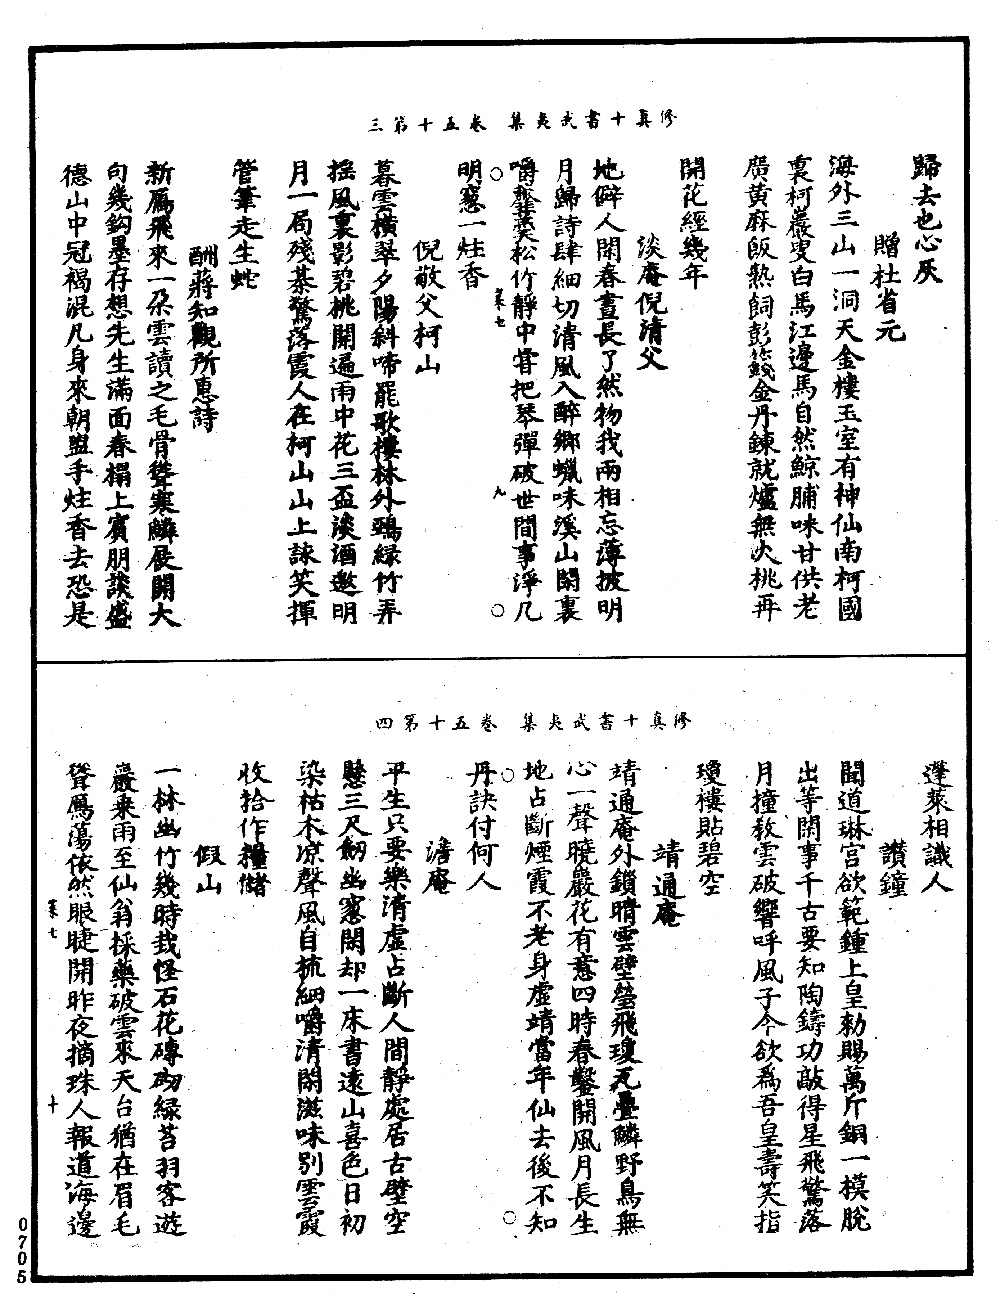 修真十書武夷集　卷五十第三
歸去也心灰
贈杜省元
海外三山一洞天金樓玉室有神仙南柯國
裏柯巖叟白馬江邊馬自然鯨脯味甘供老
廣黃麻飯熟飼彭籛金丹鍊就爐無火桃再
開花經幾年
淡庵倪清父
地僻人閑春晝長了然物我兩相忘薄披明
月歸詩肆細切清風入醉鄉蠟味溪山閑裏
嚼虀羹松竹靜中甞把琴彈破世間事淨几
菜七
九
明窻一炷香
倪敬父柯山
暮雲橫翠夕陽斜啼罷歌樓林外鴉綠竹弄
搖風裏影碧桃開遍雨中花三盃淡酒邀明
月一局殘棊驚落霞人在柯山山上詠笑揮
管筆走生蛇
酬蔣知觀所惠詩
新鴈飛來一朵雲讀之毛骨聳寒鱗展開大
句幾鈎墨存想先生滿面春榻上賓朋談盛
德山中冠褐混凡身來朝盥手炷香去恐是
修真十書武夷集　卷五十第四
蓬萊相識人
讚鐘
聞道琳宫欲範鍾上皇勑賜萬斤銅一模脫
出等閑事千古要知陶鑄功敲得星飛驚落
月撞教雲破響呼風子今欲爲吾皇壽笑指
瓊樓貼碧空
靖通庵
靖通庵外鎖晴雲壁瑩飛瓊瓦疊鱗野鳥無
心一聲曉巖花有意四時春鑿開風月長生
地占斷煙霞不老身虛靖當年仙去後不知
丹訣付何人
澹庵
平生只要樂清虛占斷人間靜處居古壁空
懸三尺劒幽窻閑却一床書遠山喜色日初
染枯木凉聲風自梳細嚼清閑滋味別雲霞
收拾作糧儲
假山
一林幽竹幾時栽怪石花磚砌緑苔羽客遊
巖乘雨至仙翁採藥破雲來天台猶在眉毛
聳鴈蕩依然眼睫開昨夜摘珠人報道海邊
菜七
十
0705